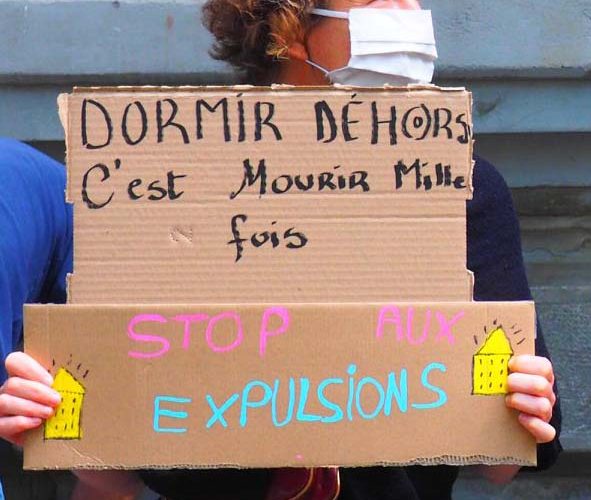 DORMIR DÉHORS
C'est MOURIR Mille
fois
STOP AUX
EXPULSIONS